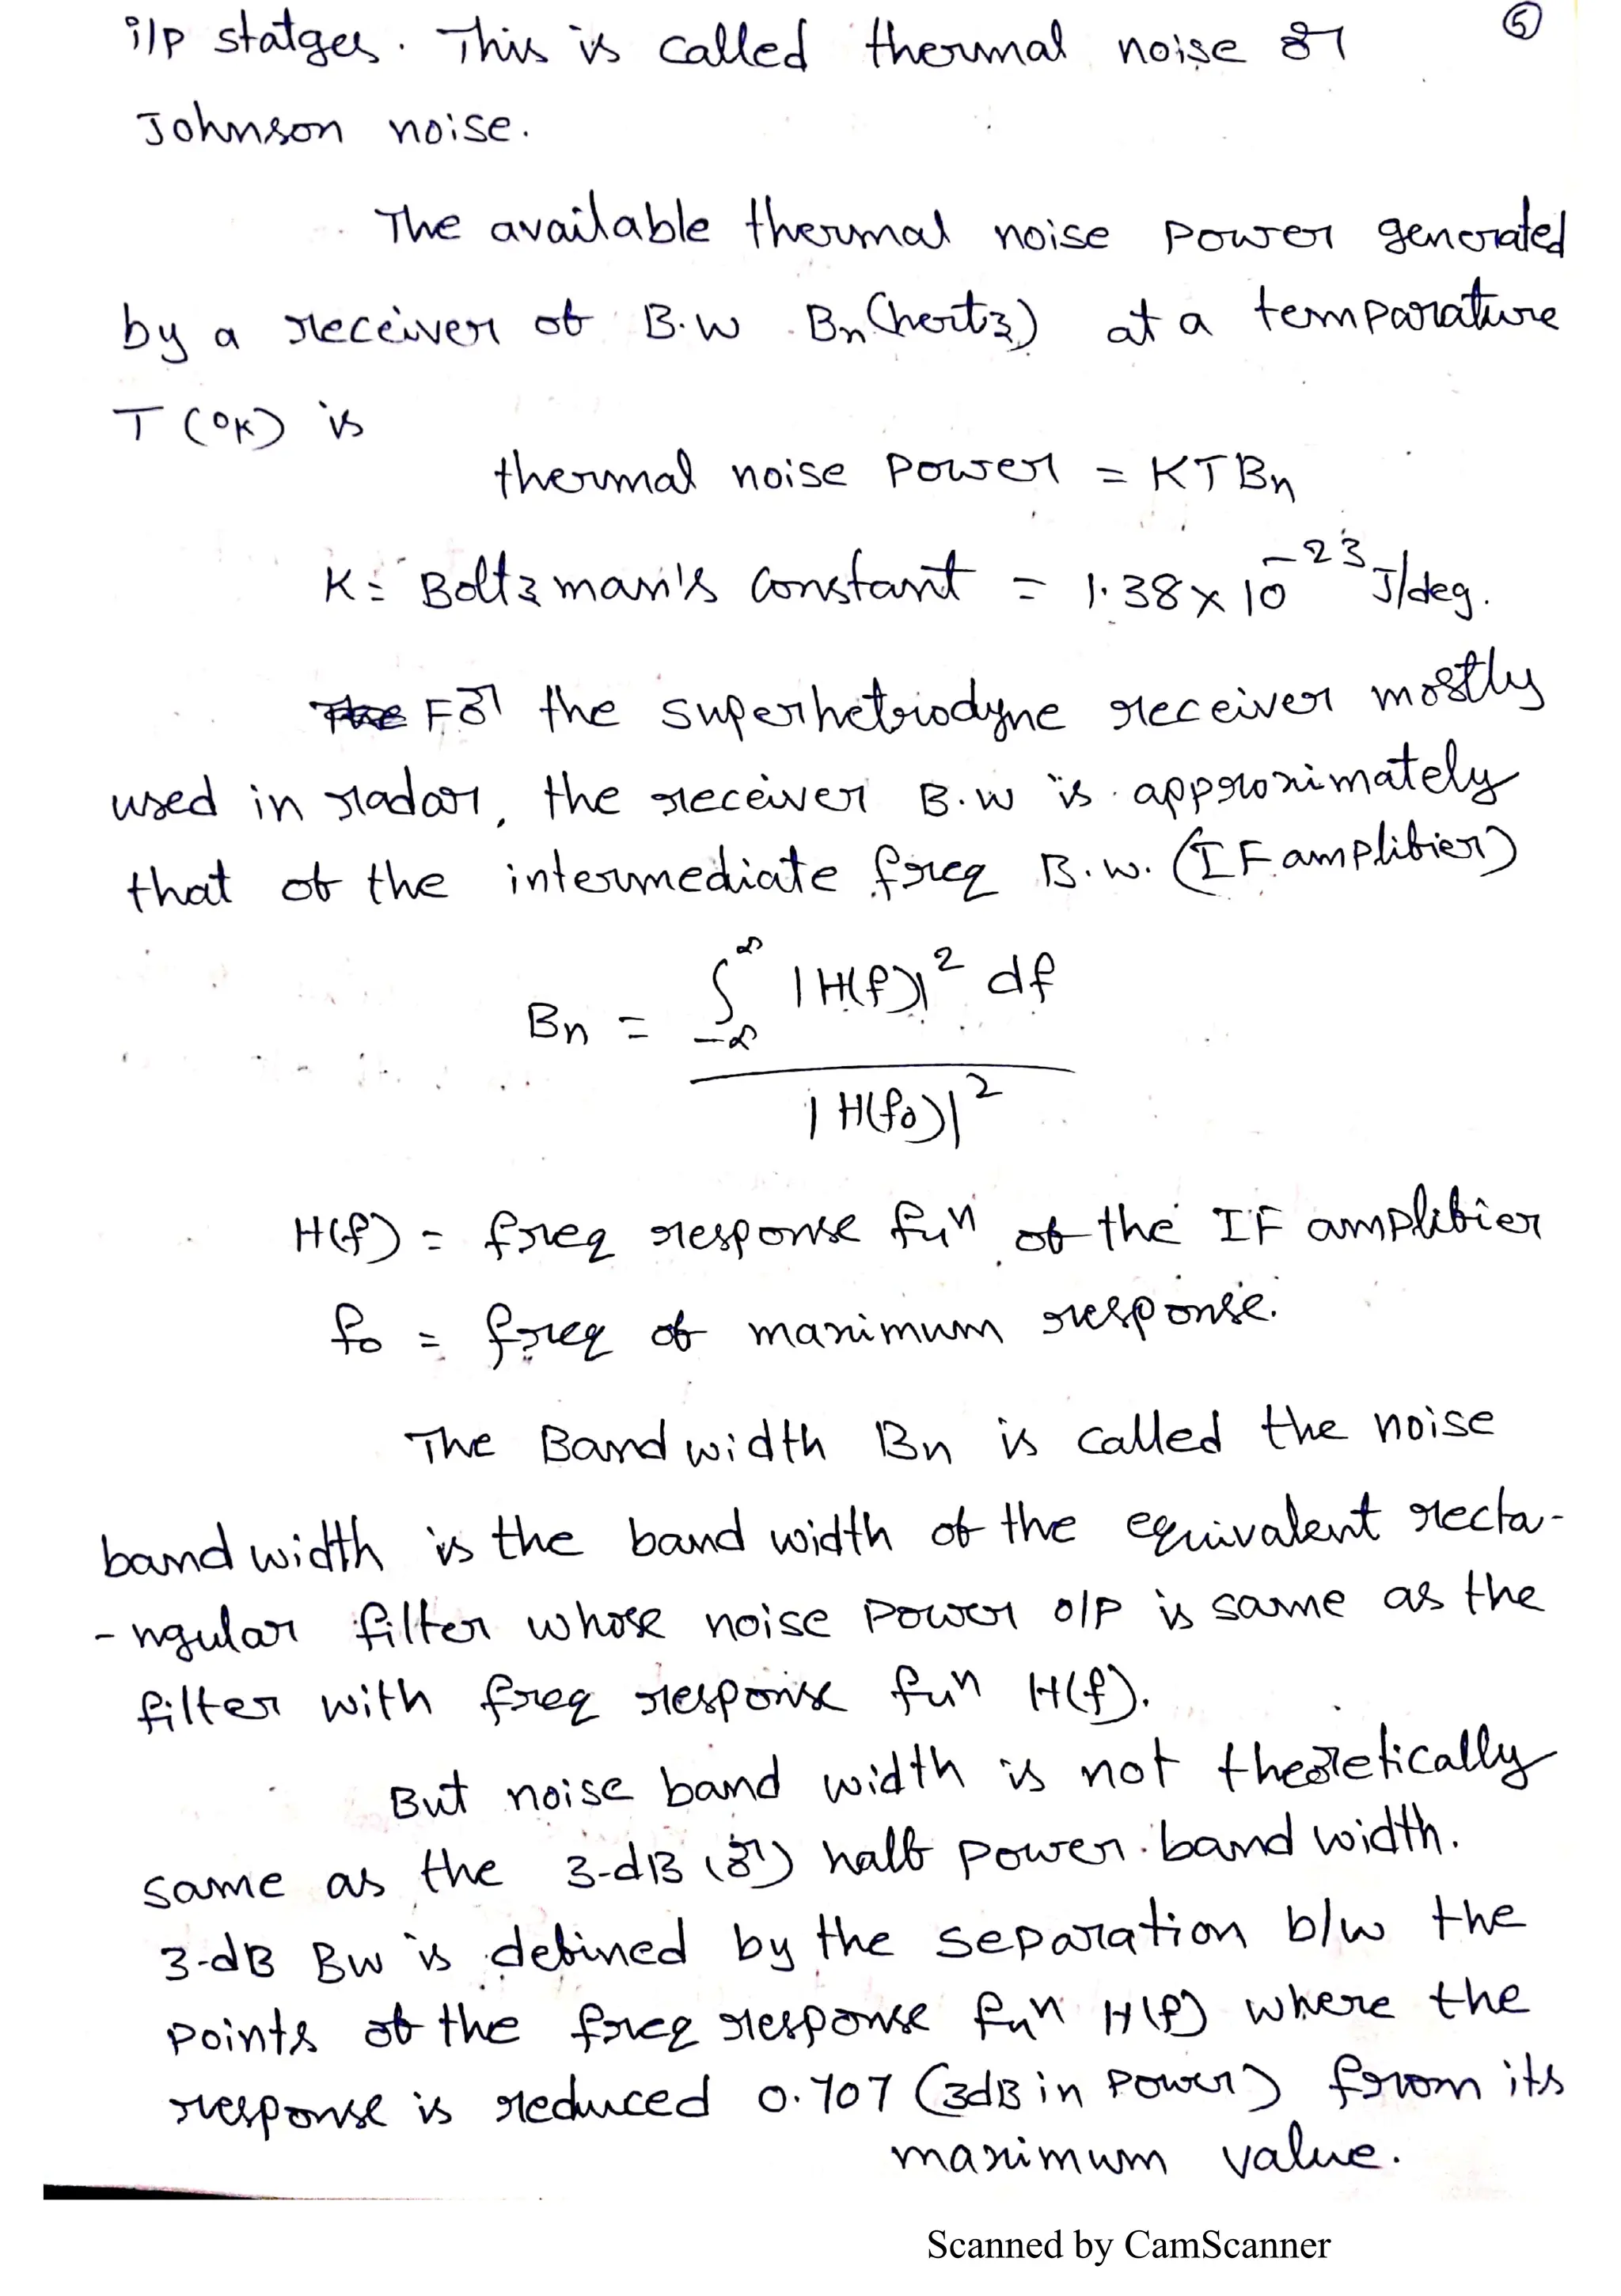 i/p statges. This is called thermal noise or ⑤
Johnson noise.
The available thermal noise power generated
by a receiver of B.W Bn (hertz) at a temparature
T (°K) is
thermal noise power = KTBn
K = Boltzman's constant = 1.38 x 10^-23 J/deg.
For the superhetriodyne receiver mostly
used in radar, the receiver B.W is approximately
that of the intermediate freq B.W. (IF amplifier)
Bn = ∫_{-∞}^{∞} |H(f)|² df
|H(f0)|²
H(f) = freq response fun of the IF amplifier
fo = freq of maximum response.
The Band width Bn is called the noise
band width is the band width of the equivalent recta-
-ngular filter whose noise power o/p is same as the
filter with freq response fun H(f).
But noise band width is not theoretically
same as the 3-dB (or) half power band width.
3-dB BW is defined by the separation b/w the
points of the freq response fun H(f) where the
response is reduced 0.707 (3dB in power) from its
maximum value.
Scanned by CamScanner